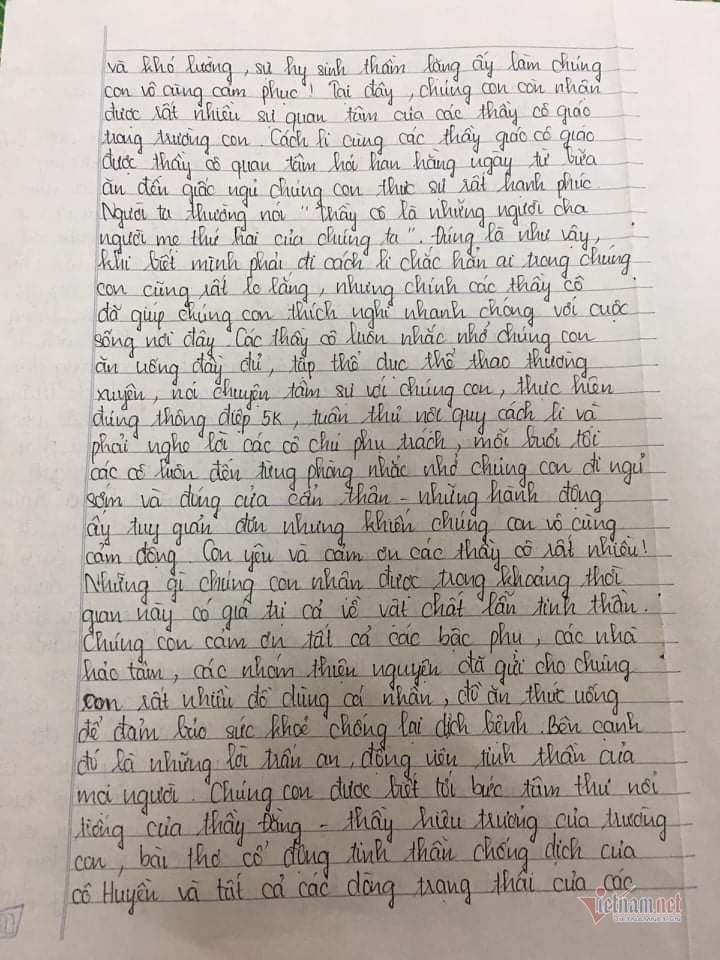 và khó lường, sự hy sinh thầm lặng ấy làm chúng
con vô cùng cảm phục! Tại đây, chúng con còn nhận
được rất nhiều sự quan tâm của các thầy cô giáo
trong trường con. Cách li cùng các thầy giáo cô giáo
được thầy cô quan tâm hỏi han hằng ngày từ bữa
ăn đến giấc ngủ chúng con thực sự rất hạnh phúc.
Người ta thường nói "thầy cô là những người cha
người mẹ thứ hai của chúng ta". Đúng là như vậy,
khi biết mình phải đi cách li chắc hẳn ai trong chúng
con cũng rất lo lắng, nhưng chính các thầy cô
đã giúp chúng con thích nghi nhanh chóng với cuộc
sống nơi đây. Các thầy cô luôn nhắc nhở chúng con
ăn uống đầy đủ, tập thể dục thể thao thường
xuyên, nói chuyện tâm sự với chúng con, thực hiện
đúng thông điệp 5K, tuân thủ nội quy cách li và
phải nghe lời các cô chú phụ trách, mỗi buổi tối
các cô luôn đến từng phòng nhắc nhở chúng con đi ngủ
sớm và đóng cửa cẩn thận - những hành động
ấy tuy giản đơn nhưng khiến chúng con vô cùng
cảm động. Con yêu và cảm ơn các thầy cô rất nhiều!
Những gì chúng con nhận được trong khoảng thời
gian này có giá trị cả về vật chất lẫn tinh thần.
Chúng con cảm ơn tất cả các bậc phụ, các nhà
hảo tâm, các nhóm thiện nguyện đã gửi cho chúng
con rất nhiều đồ dùng cá nhân, đồ ăn thức uống
để đảm bảo sức khoẻ chống lại dịch bệnh. Bên cạnh
đó là những lời trấn an, động viên tinh thần của
mọi người. Chúng con được biết tới bức tâm thư nổi
tiếng của thầy Đằng - thầy hiệu trưởng của trường
con, bài thơ cổ động tinh thần chống dịch của
cô Huyền và tất cả các dòng trạng thái của các
Vietnam.net